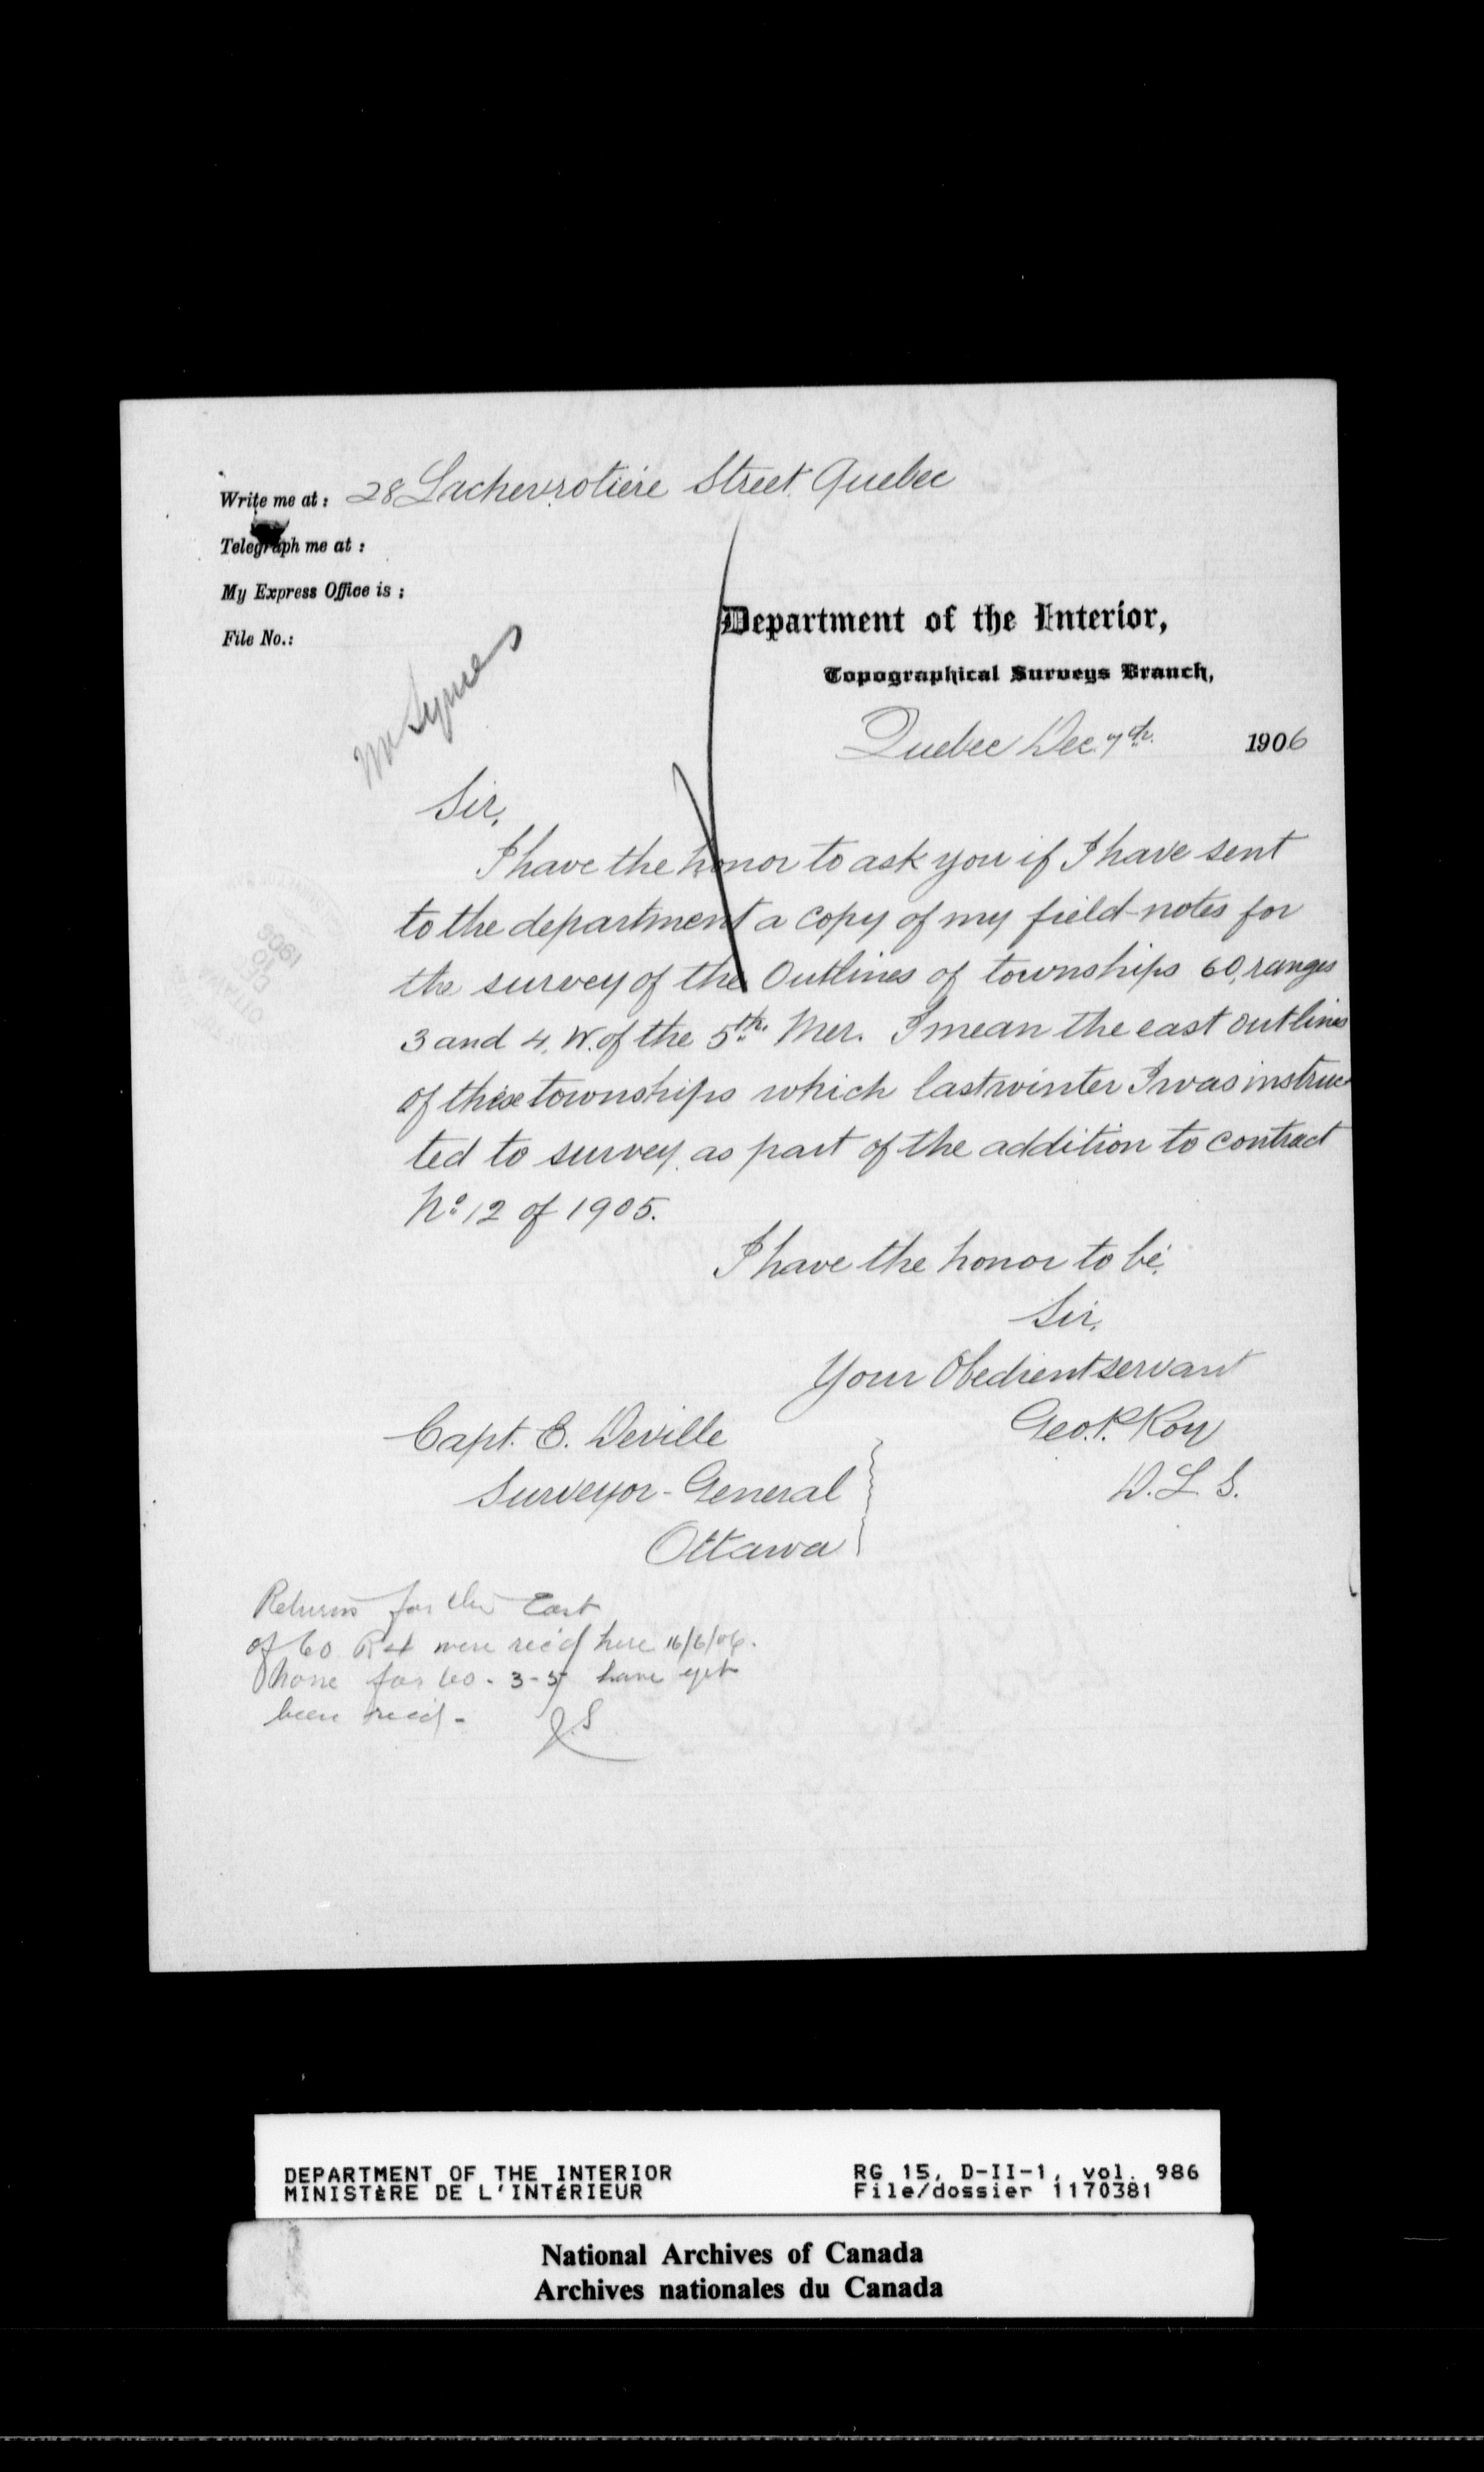 Write me at: 28 Lachevrotière Street, Quebec
Telegraph me at:
My Express Office is:
File No.:
Mr Symes
Department of the Interior,
Topographical Surveys Branch,
Quebec Dec. 7th. 1906
Sir,
I have the honor to ask you if I have sent
to the department a copy of my field-notes for
the survey of the Outlines of townships 60, ranges
3 and 4, W. of the 5th. Mer. I mean the east outlines
of these townships which last winter I was instruc
ted to survey, as part of the addition to contract
No 12 of 1905.
I have the honor to be,
Sir,
Your Obedient servant
Geo. P. Roy
D. L. S.
Capt. E. Deville
Surveyor-General
Ottawa
Returns for the East
of 60 R4 were rec'd here 16/6/06.
None for 60-3-5 have yet
been rec'd - J.S
DEPARTMENT OF THE INTERIOR
MINISTÈRE DE L'INTÉRIEUR
RG 15, D-II-1, vol. 986
File/dossier 1170381
National Archives of Canada
Archives nationales du Canada